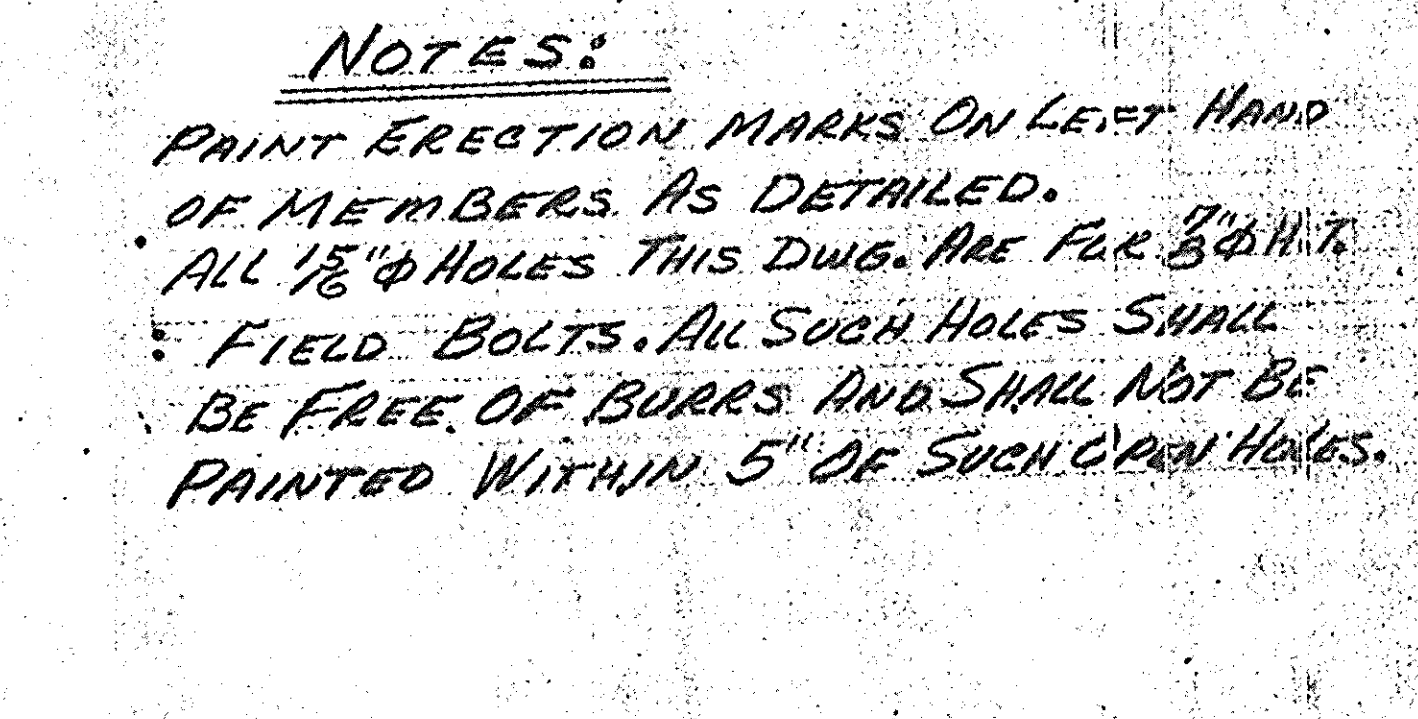 NOTES:
PAINT ERECTION MARKS ON LEFT HAND
OF MEMBERS AS DETAILED.
ALL 15/16"φ HOLES THIS DWG. ARE FOR 7/8"φ H.T.
FIELD BOLTS. ALL SUCH HOLES SHALL
BE FREE OF BURRS AND SHALL NOT BE
PAINTED WITHIN 5" OF SUCH OPEN HOLES.